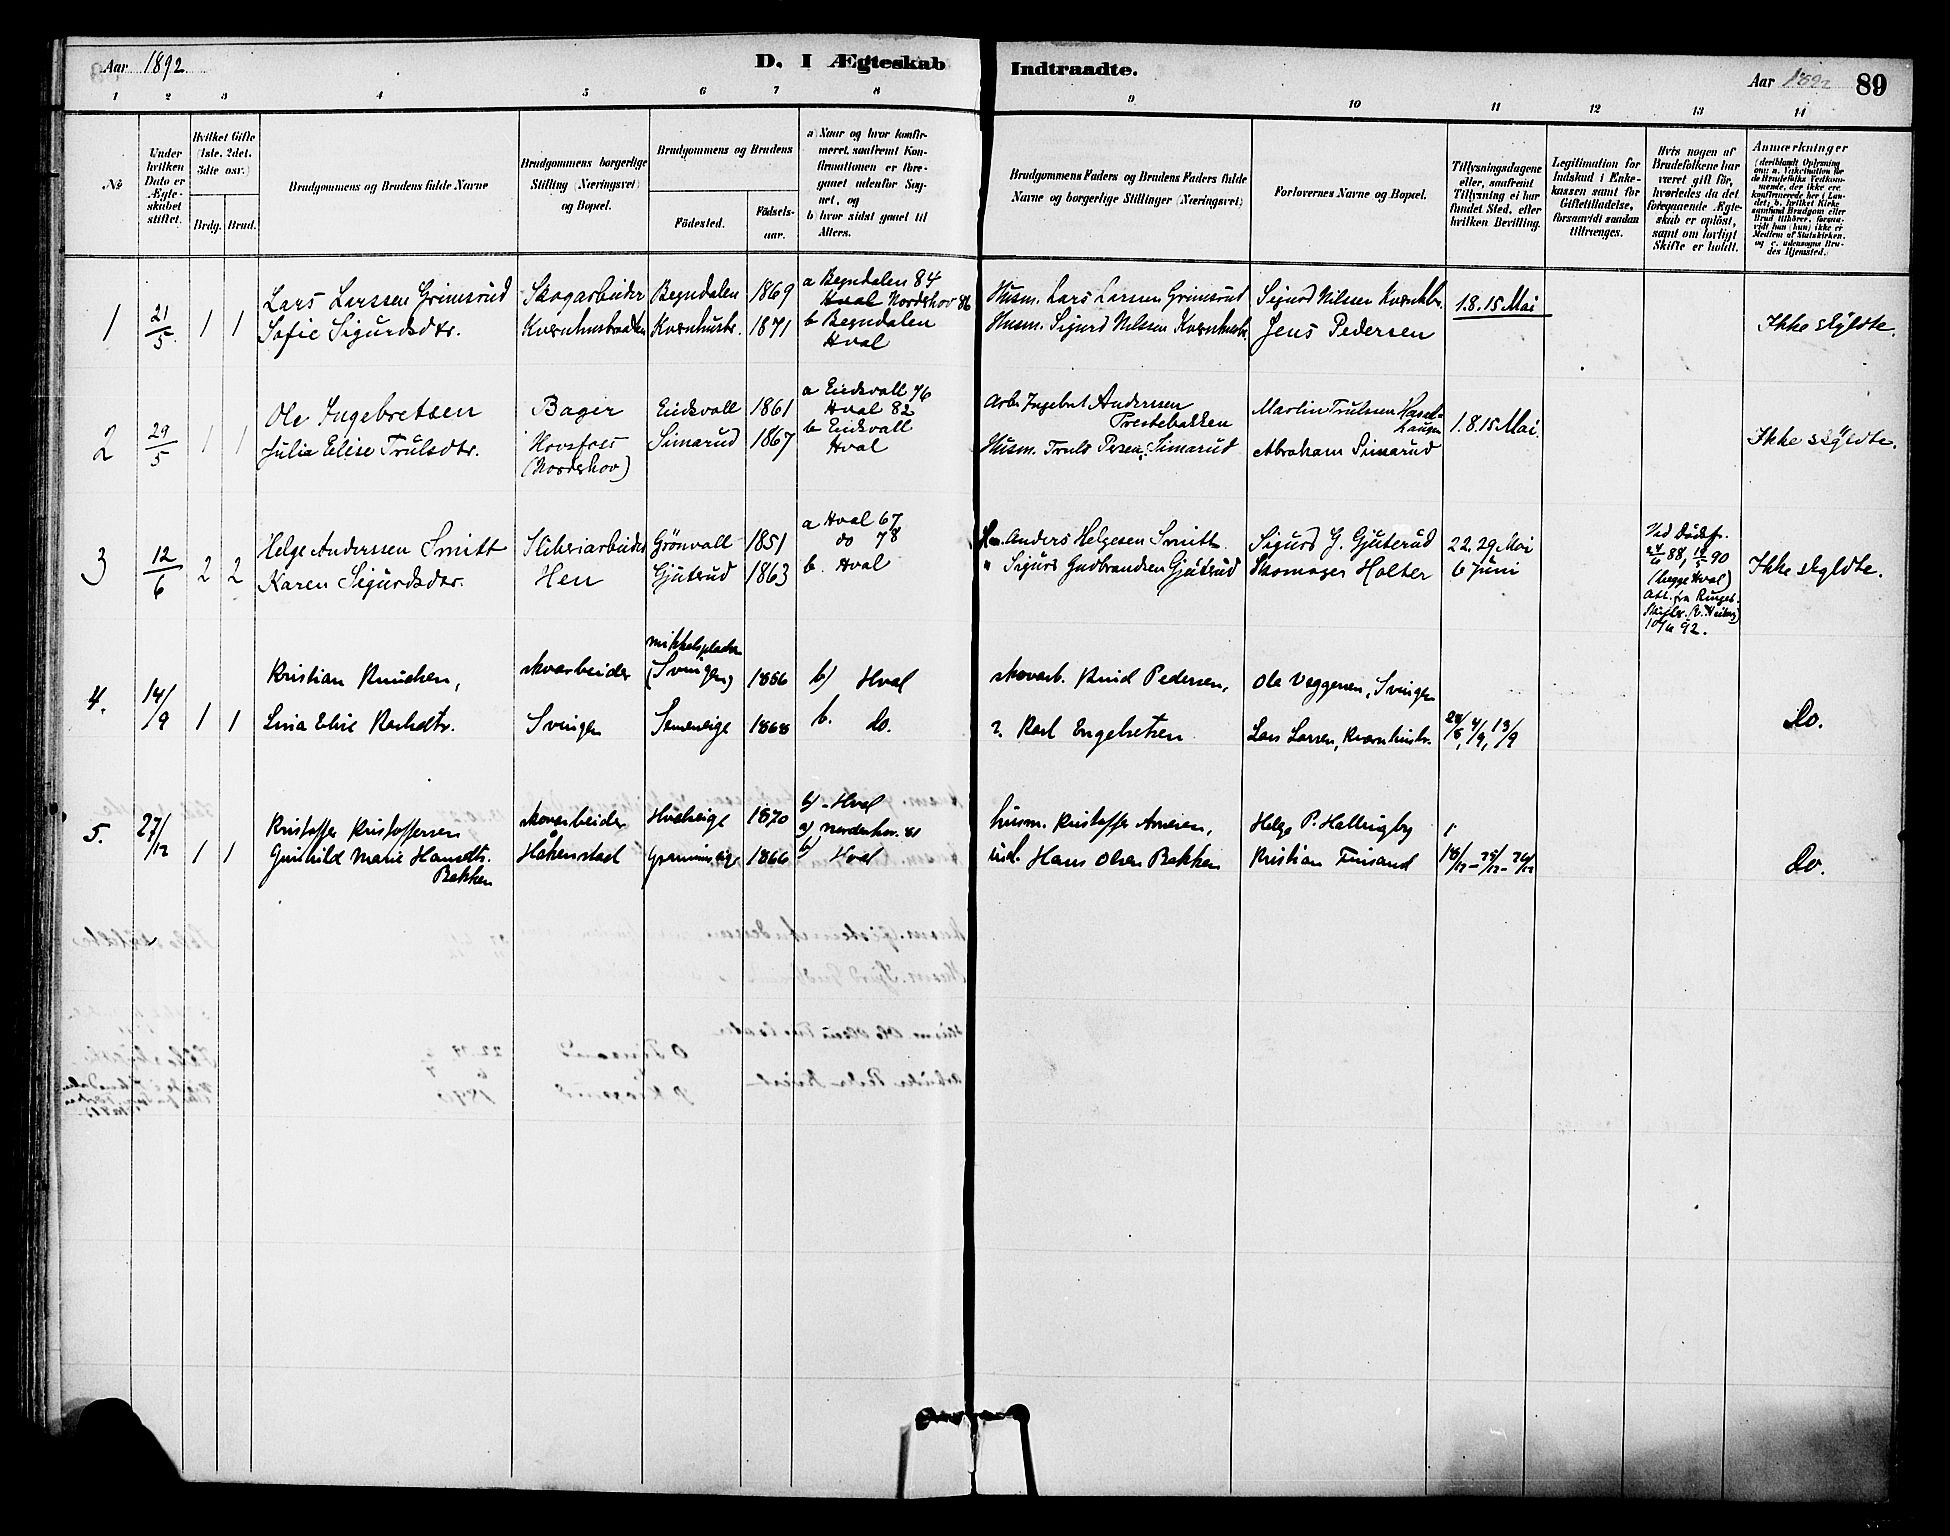 Aar 1892
D. I Ægteskab
Indtraadte.
Aar 1892
89
1 2 3 4 5 6 7 8 9 10 11 12 13 14
No
Under hvilken Dato er Ægteskabet stiftet.
Hvilket Gifte (1ste, 2det, 3die osv.)
Brdg. Brud.
Brudgommens og Brudens fulde Navne
Brudgommens borgerlige Stilling (Næringsvei) og Bopæl.
Brudgommens og Brudens
Födested.
Födselsaar.
a) Naar og hvor konfirmeret, saafremt Konfirmationen er foregaaet udenfor Sognet, og
b) hvor sidst gaaet til Alters.
Brudgommens Faders og Brudens Faders fulde Navne og borgerlige Stillinger (Næringsvei)
Forlovernes Navne og Bopæl.
Tillysningsdagene eller, saafremt Tillysning ei har fundet Sted, efter hvilken Bevilling.
Legitimation for Indskud i Enkekassen samt for Giftetilladelse, forsaavidt saadan tiltrænges.
Hvis nogen af Brudefolkene har været gift för, hvorledes da det foregaaende Ægteskab er oplöst, samt om lovligt Skifte er holdt.
Anmærkninger
1 21/5 1 1
Lars Larssen Grimsrud Skogarbeider Begndalen 1869 a Begndalen 84
Hval Norderhov 86
Sofie Sigurdsdtr. Kvernhusbraaten Kvernhusbr. 1871 b Begndalen
Hval
Husm. Lars Larssen Grimsrud Sigurd Nilssen Kvernhbr. 1.8.15 Mai
Husm. Sigurd Nilssen Kvernhusbr. Jens Pedersen Ikke skyldte.
2 29/5 1 1
Ole Ingebretsen Bager Eidsvoll 1861 a Eidsvoll 76
Hval 82
Julia Elise Trulsdtr. Hovsfos Simarud 1867 b Eidsvoll
(Norderhov) Hval
Arb. Ingebret Anderssen Prestebakken Martin Trulssen 1.8.15 Mai.
Husm. Truls Persen, Simarud Abraham Simarud Ikke skyldte.
3 12/6 2 2
Helge Anderssen Smitt Sliberiarbeider Grönvoll 1851 a Hval 67
do 78
Karen Sigurdsdtr. Hen Gjuterud 1863 b. Hval
Anders Helgesen Smitt Sigurd G. Gjuterud 22. 29 Mai
" Sigurd Gudbrandsen Gjuterud Skomager Holter 6 Juni
Ved Dödsf.
(begge Hval)
Att. fra Ringer.
Ikke skyldte.
4. 14/9 1 1
Kristian Knudsen, skovarbeider (Svingen) 1866 b) Hval
Lina Elise Karlsdtr. Svingen Semeneige 1868 b. Do.
skovarb. Knud Pedersen, Ole Veggersen, Svingen
Karl Engebretsen Lars Larsen, Kvernhusbr. 28/8, 4/9, 13/9
Do.
5. 27/12 1 1
Kristoffer Kristoffersen skovarbeider Hvaleeige 1870 b) Hval
a) Norderhov. 81
Gunhild Marie Hansdtr. Bakken Håkenstad 1866 b) Hval
husm. Kristoffer Arnesen, Helge P. Hallingby
ind. Hans Olsen Bakken Kristian Finsand 18/12 – 25/12 – 26/12
Do.